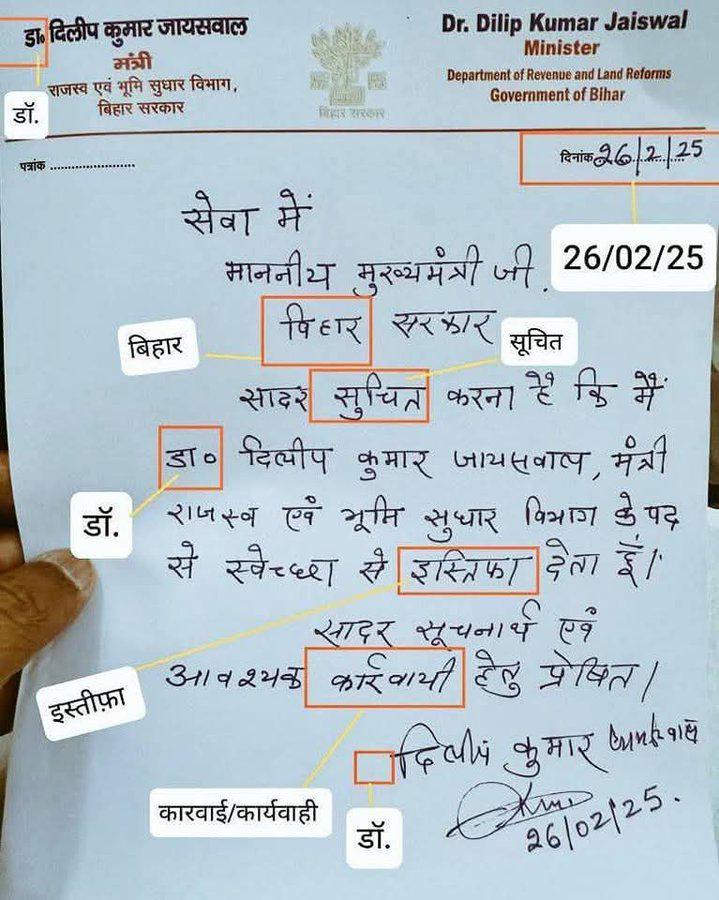 डा॰ दिलीप कुमार जायसवाल
मंत्री
राजस्व एवं भूमि सुधार विभाग,
बिहार सरकार
डॉ.
बिहार सरकार
Dr. Dilip Kumar Jaiswal
Minister
Department of Revenue and Land Reforms
Government of Bihar
पत्रांक ........................
दिनांक 26/2/25
26/02/25
सेवा में
माननीय मुख्यमंत्री जी.
विहार सरकार
बिहार
सूचित
सादर सुचित करना है कि मैं
डा० दिलीप कुमार जायसवाल, मंत्री
डॉ.
राजस्व एवं भूमि सुधार विभाग के पद
से स्वेच्छा से इस्तिफा देता हूँ।
सादर सूचनार्थ एवं
आवश्यक कार्रवायी हेतु प्रेषित।
इस्तीफ़ा
दिलीप कुमार
कारवाई/कार्यवाही
डॉ.
26/02/25.